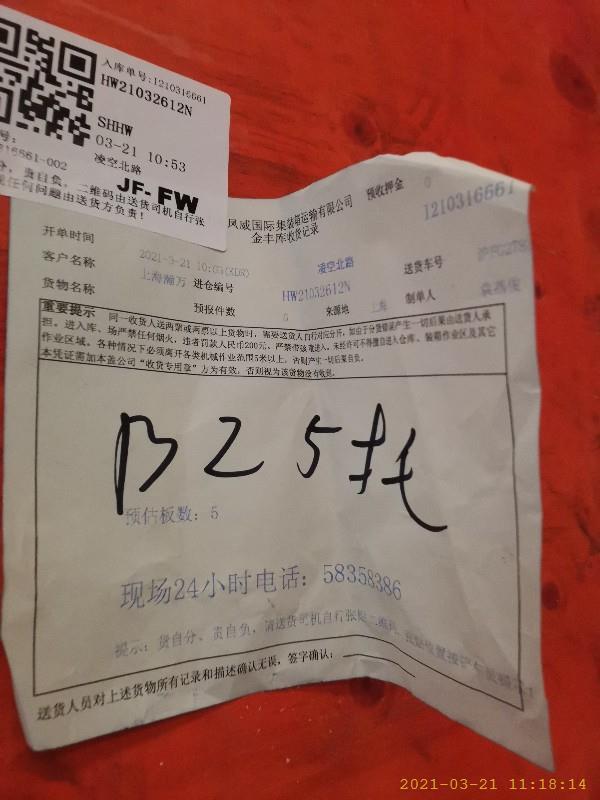 入库单号:1210316661
HW21032612N
SHHW
03-21 10:53
凌空北路
JF-FW
任何问题由送货方负责!
风威国际集装箱运输有限公司
预收押金 0
1210316661
金丰库收货记录
开单时间
2021-3-21
凌空北路
送货车号
客户名称
上海瀚万
进仓编号
HW21032612N
制单人
货物名称
预报件数
0
来源地
上海
重要提示
同一收货人送两票或两票以上货物时，需要送货人自行对应分开，如由于分货错误产生一切后果由送货人承
担。进入库、场严禁任何烟火，违者罚款人民币200元。严禁带孩童进入。未经许可不得擅自进入仓库、装箱作业区及其它
作业区域。各种情况下必须离开各类机械作业范围5米以上，否则产生一切后果自负。
本凭证需加本盖公司“收货专用章”方为有效，否则视为该货物没有收到。
B2 5托
预估板数: 5
现场24小时电话: 58358386
提示: 货自分、责自负，请送货司机自行张贴二维码
送货人员对上述货物所有记录和描述确认无误，签字确认:
2021-03-21 11:18:14